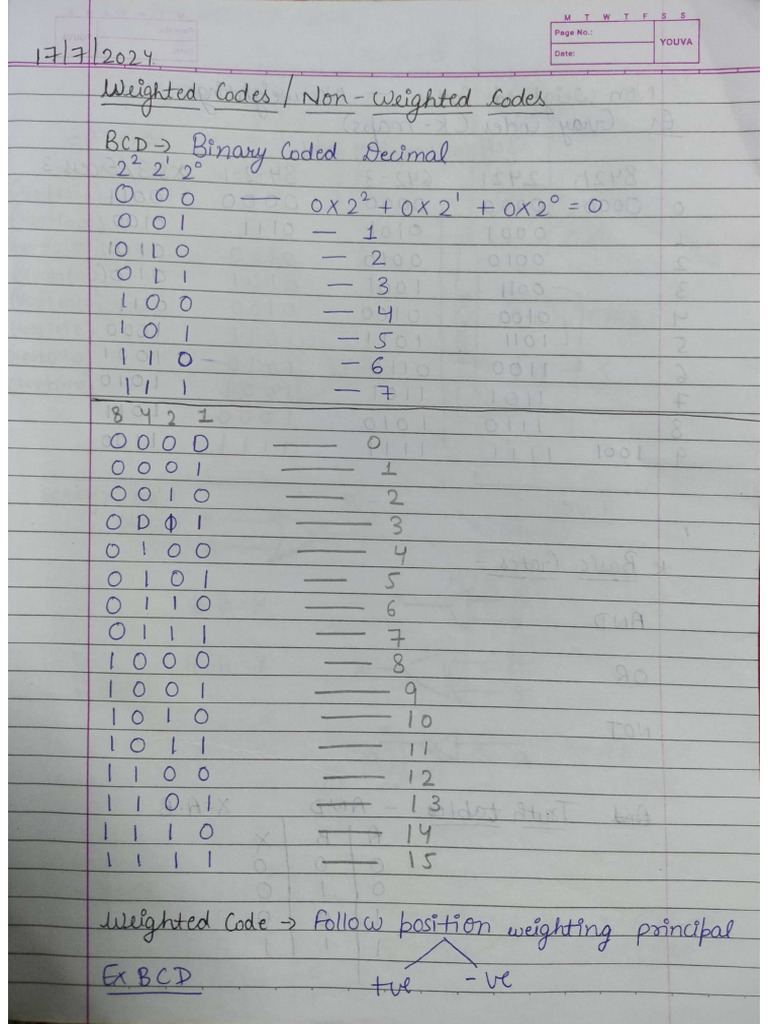 M T W T F S S
Page No.:
YOUVA
Date:
17/7/2024
Weighted Codes / Non-Weighted Codes
BCD → Binary Coded Decimal
2² 2¹ 2⁰
0 0 0 — 0×2² + 0×2¹ + 0×2⁰ = 0
0 0 1 — 1
0 1 0 — 2
0 1 1 — 3
1 0 0 — 4
1 0 1 — 5
1 1 0 — 6
1 1 1 — 7
8 4 2 1
0 0 0 0 — 0
0 0 0 1 — 1
0 0 1 0 — 2
0 0 1 1 — 3
0 1 0 0 — 4
0 1 0 1 — 5
0 1 1 0 — 6
0 1 1 1 — 7
1 0 0 0 — 8
1 0 0 1 — 9
1 0 1 0 — 10
1 0 1 1 — 11
1 1 0 0 — 12
1 1 0 1 — 13
1 1 1 0 — 14
1 1 1 1 — 15
Weighted Code → Follow position weighting principal
Ex BCD +ve -ve